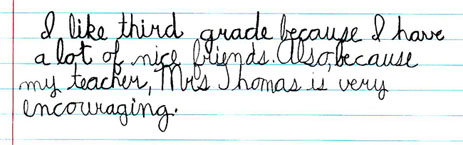 I like third grade because I have
a lot of nice friends. Also, because
my teacher, Mrs Thomas is very
encouraging.